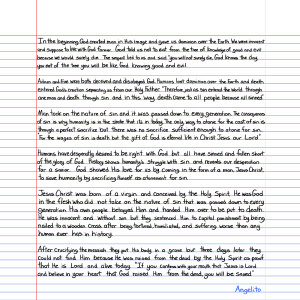 In the beginning God created man in His image and gave us dominion over the Earth. We were innocent
and suppose to live with God forever. God told us not to eat from the tree of knowledge of good and evil
because we would surely die. The serpent lied to us and said "you will not surely die, God knows the day
you eat of the tree you will be like God knowing good and evil.
Adam and Eve were both deceived and disobeyed God. Humans lost dominion over the Earth and death
entered God's creation separating us from our Holy Father. "Therefore just as sin entered the world through
one man and death through sin and in this way death came to all people because all sinned.
Man took on the nature of sin and it was passed down to every generation. The consequence
of sin is why humanity is in the state that its in today. The only way to atone for the cost of sin is
through a perfect sacrifice but there was no sacrifice sufficient enough to atone for sin.
For the wages of sin is death but the gift of God is eternal life in Christ Jesus our Lord."
Humans have desperatly desired to be right with God but all have sinned and fallen short
of the glory of God. Today shows humanity's struggle with sin and reveals our desperation
for a savior. God showed His love for us by coming in the form of a man, Jesus Christ.
To save humanity by sacrificing Himself as atonement for sin.
Jesus Christ was born of a virgin and conceived by the Holy Spirit. He was God
in the flesh who did not take on the nature of sin that was passed down to every
generation. His own people betrayed Him and handed Him over to be put to death.
He was innocent and without sin but they sentenced Him to capital punishment by being
nailed to a wooden cross after being tortured, humiliated, and suffering worse than any
human ever has in history.
After crucifying the messiah they put His body in a grave but three days later they
could not find Him because He was raised from the dead by the Holy Spirit as proof
that He is Lord and alive today. "If you confess with your mouth that Jesus is Lord
and believe in your heart that God raised Him from the dead, you will be saved."
Angelito